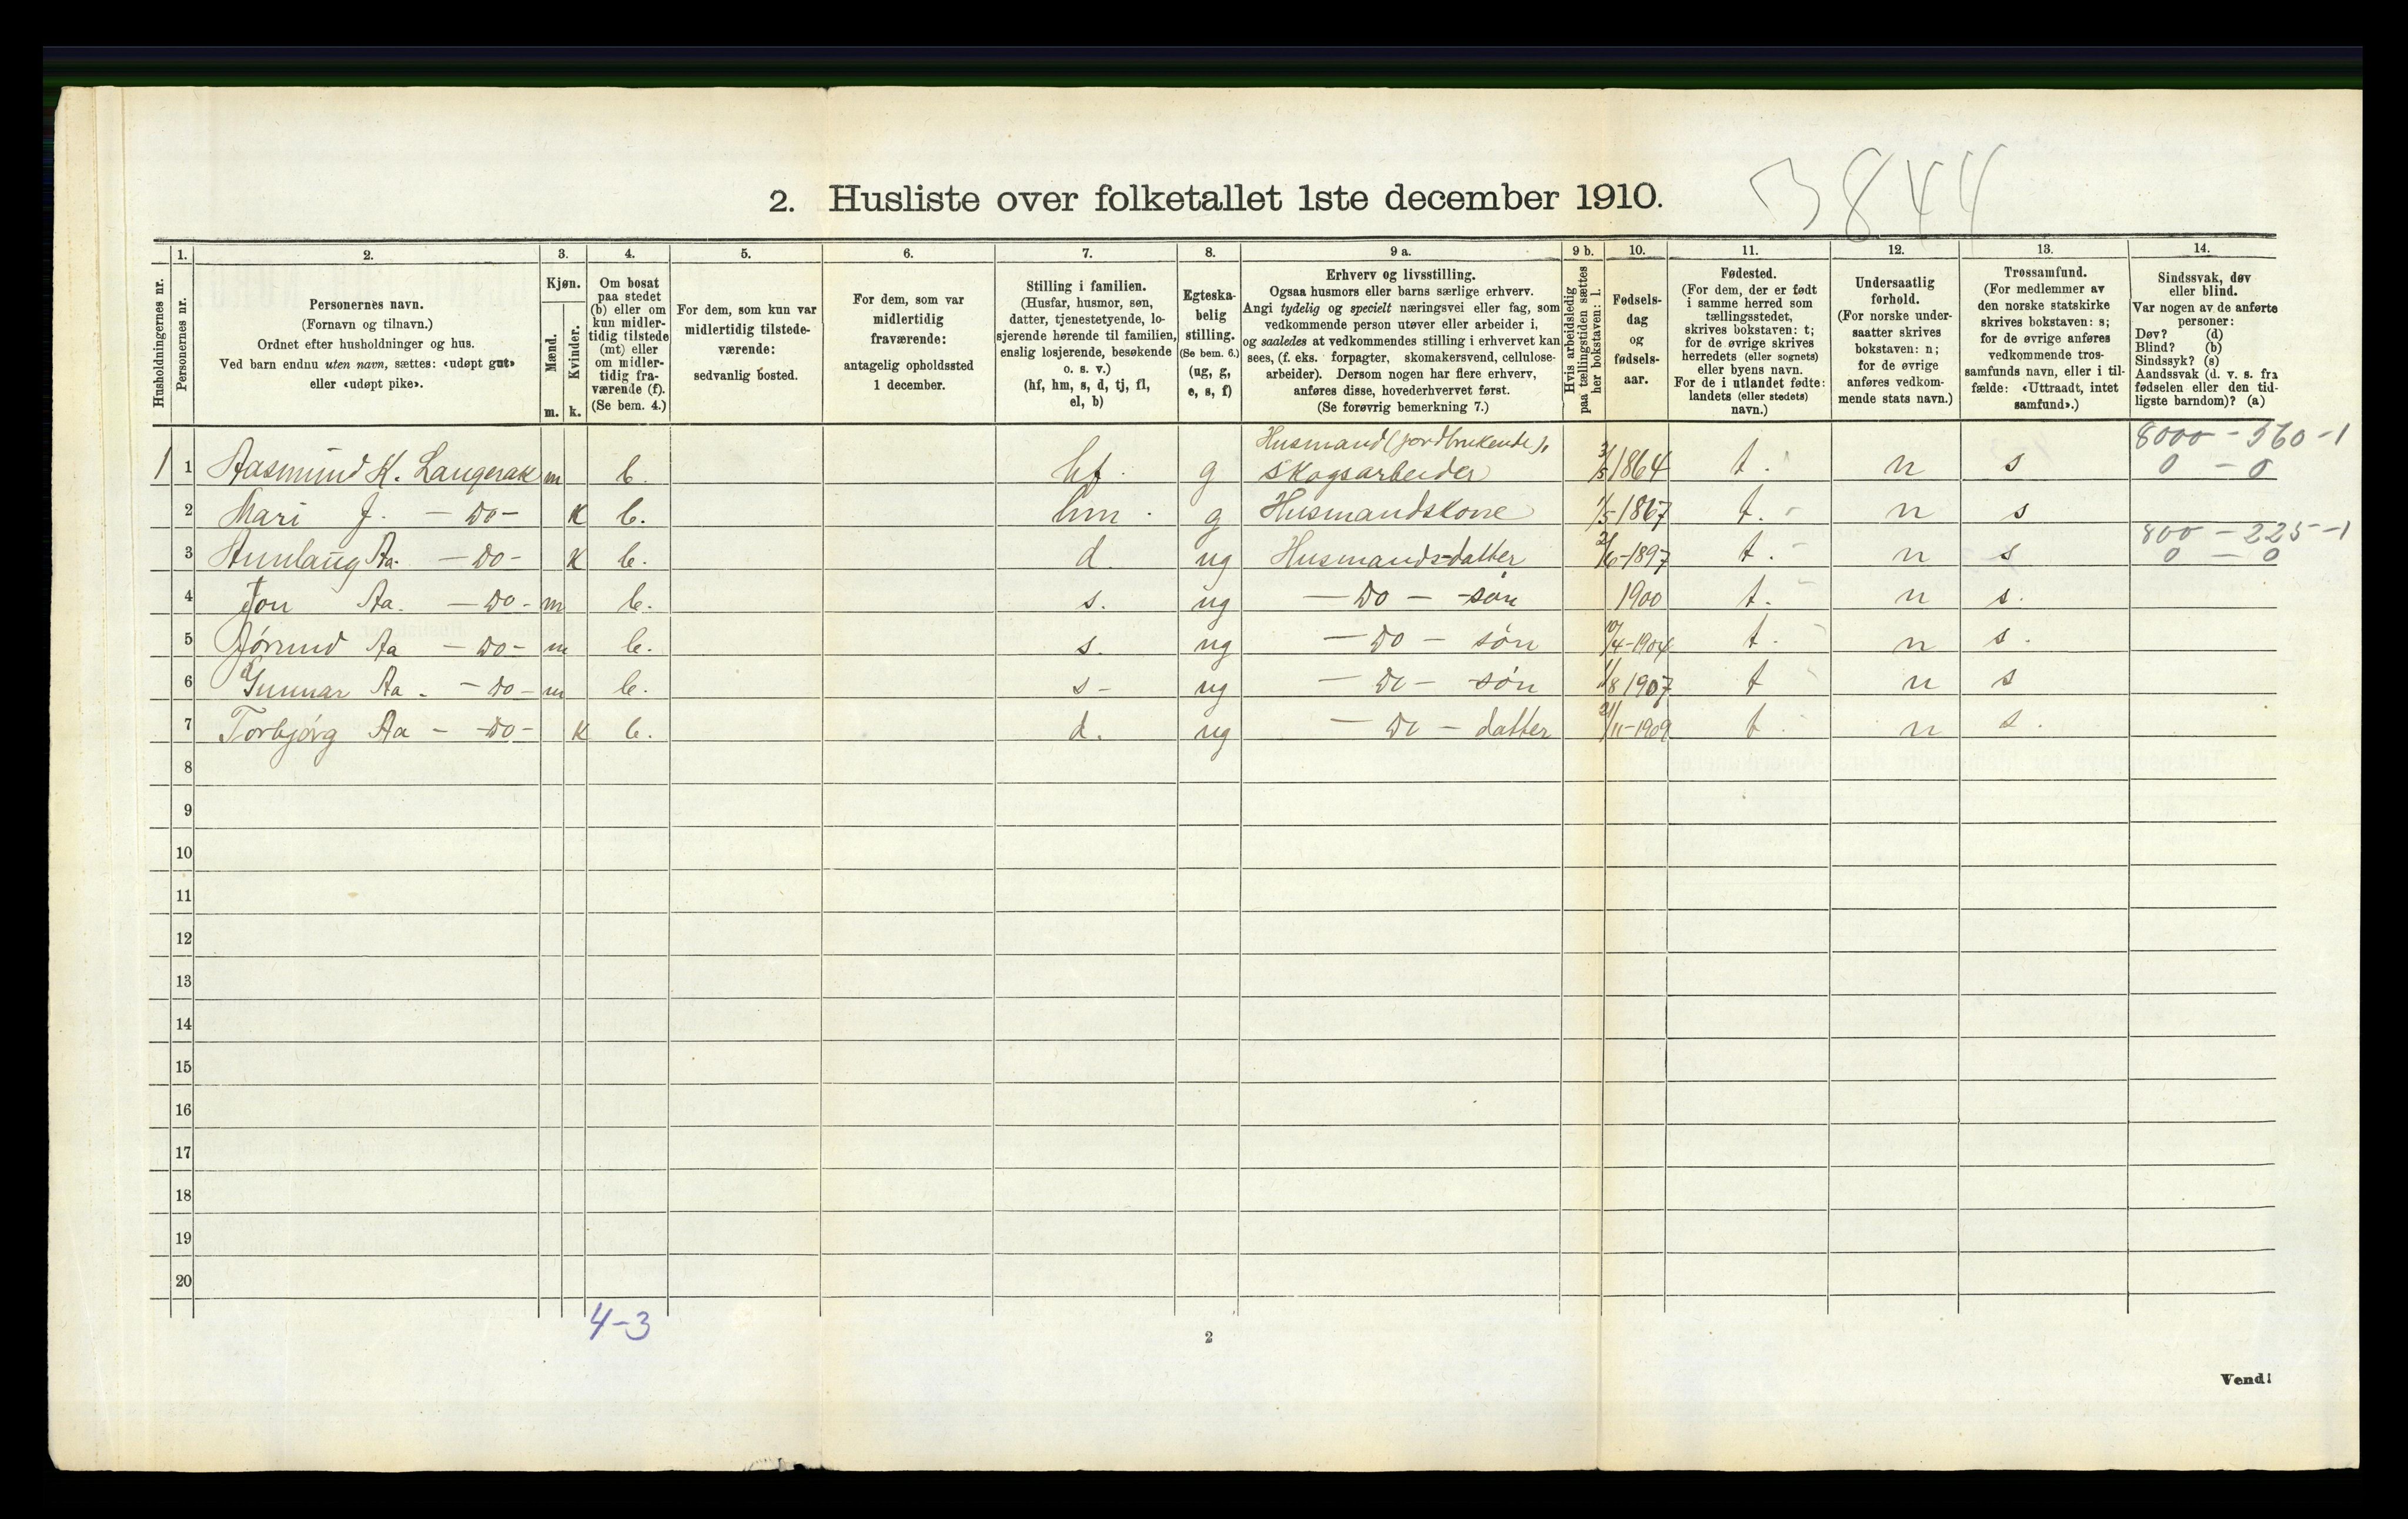 2. Husliste over folketallet 1ste december 1910.
3844
Husholdningernes nr.
1.
Personernes nr.
2.
Personernes navn.
(Fornavn og tilnavn.)
Ordnet efter husholdninger og hus.
Ved barn endnu uten navn, sættes: «udøpt gut»
eller «udøpt pike».
3.
Kjøn.
Mænd.
Kvinder.
m. k.
4.
Om bosat
paa stedet
(b) eller om
kun midler-
tidig tilstede
(mt) eller
om midler-
tidig fra-
værende (f).
(Se bem. 4.)
5.
For dem, som kun var
midlertidig tilstede-
værende:
sedvanlig bosted.
6.
For dem, som var
midlertidig
fraværende:
antagelig opholdssted
1 december.
7.
Stilling i familien.
(Husfar, husmor, søn,
datter, tjenestetyende, lo-
sjerende hørende til familien,
enslig losjerende, besøkende
o. s. v.)
(hf, hm, s, d, tj, fl,
el, b)
8.
Egteska-
belig
stilling.
(Se bem. 6.)
(ug, g,
e, s, f)
9 a.
Erhverv og livsstilling.
Ogsaa husmors eller barns særlige erhverv.
Angi tydelig og specielt næringsvei eller fag, som
vedkommende person utøver eller arbeider i,
og saaledes at vedkommendes stilling i erhvervet kan
sees, (f. eks. forpagter, skomakersvend, cellulose-
arbeider). Dersom nogen har flere erhverv,
anføres disse, hovederhvervet først.
(Se forøvrig bemerkning 7.)
9 b.
Hvis arbeidsledig
paa tællingstiden sættes
her bokstaven: l.
10.
Fødsels-
dag
og
fødsels-
aar.
11.
Fødested.
(For dem, der er født
i samme herred som
tællingsstedet,
skrives bokstaven: t;
for de øvrige skrives
herredets (eller sognets)
eller byens navn.
For de i utlandet fødte:
landets (eller stedets)
navn.)
12.
Undersaatlig
forhold.
(For norske under-
saatter skrives
bokstaven: n;
for de øvrige
anføres vedkom-
mende stats navn.)
13.
Trossamfund.
(For medlemmer av
den norske statskirke
skrives bokstaven: s;
for de øvrige anføres
vedkommende tros-
samfunds navn, eller i til-
fælde: «Uttraadt, intet
samfund».)
14.
Sindssvak, døv
eller blind.
Var nogen av de anførte
personer:
Døv? (d)
Blind? (b)
Sindssyk? (s)
Aandssvak (d. v. s. fra
fødselen eller den tid-
ligste barndom)? (a)
Husmand (jordbrukende), 8000 - 560 - 1
1 1 Aasmund K. Langerak m b. hf. g skogsarbeider 3/5 1864 t. n s 0 - 0
2 Mari J. - Do - k b. hm. g Husmandskone 1/5 1867 t. n s
800 - 225 - 1
3 Aunlaug Aa. - Do - k b. d. ug Husmandsdatter 1897 t. n s 0 - 0
4 Jon Aa. - Do - m b. s. ug - Do - søn 1900 t. n s.
5 Jørund Aa - Do - m b. s. ug - Do - søn 10/4-1904 t. n s.
6 Gunnar Aa. - Do - m b. s - ug - Do - søn 1/8 1907 t n s
7 Torbjørg Aa - Do - k b. d. ug - Do - datter 21/11-1909 t. n s.
8
9
10
11
12
13
14
15
16
17
18
19
20
4-3
2
Vend!